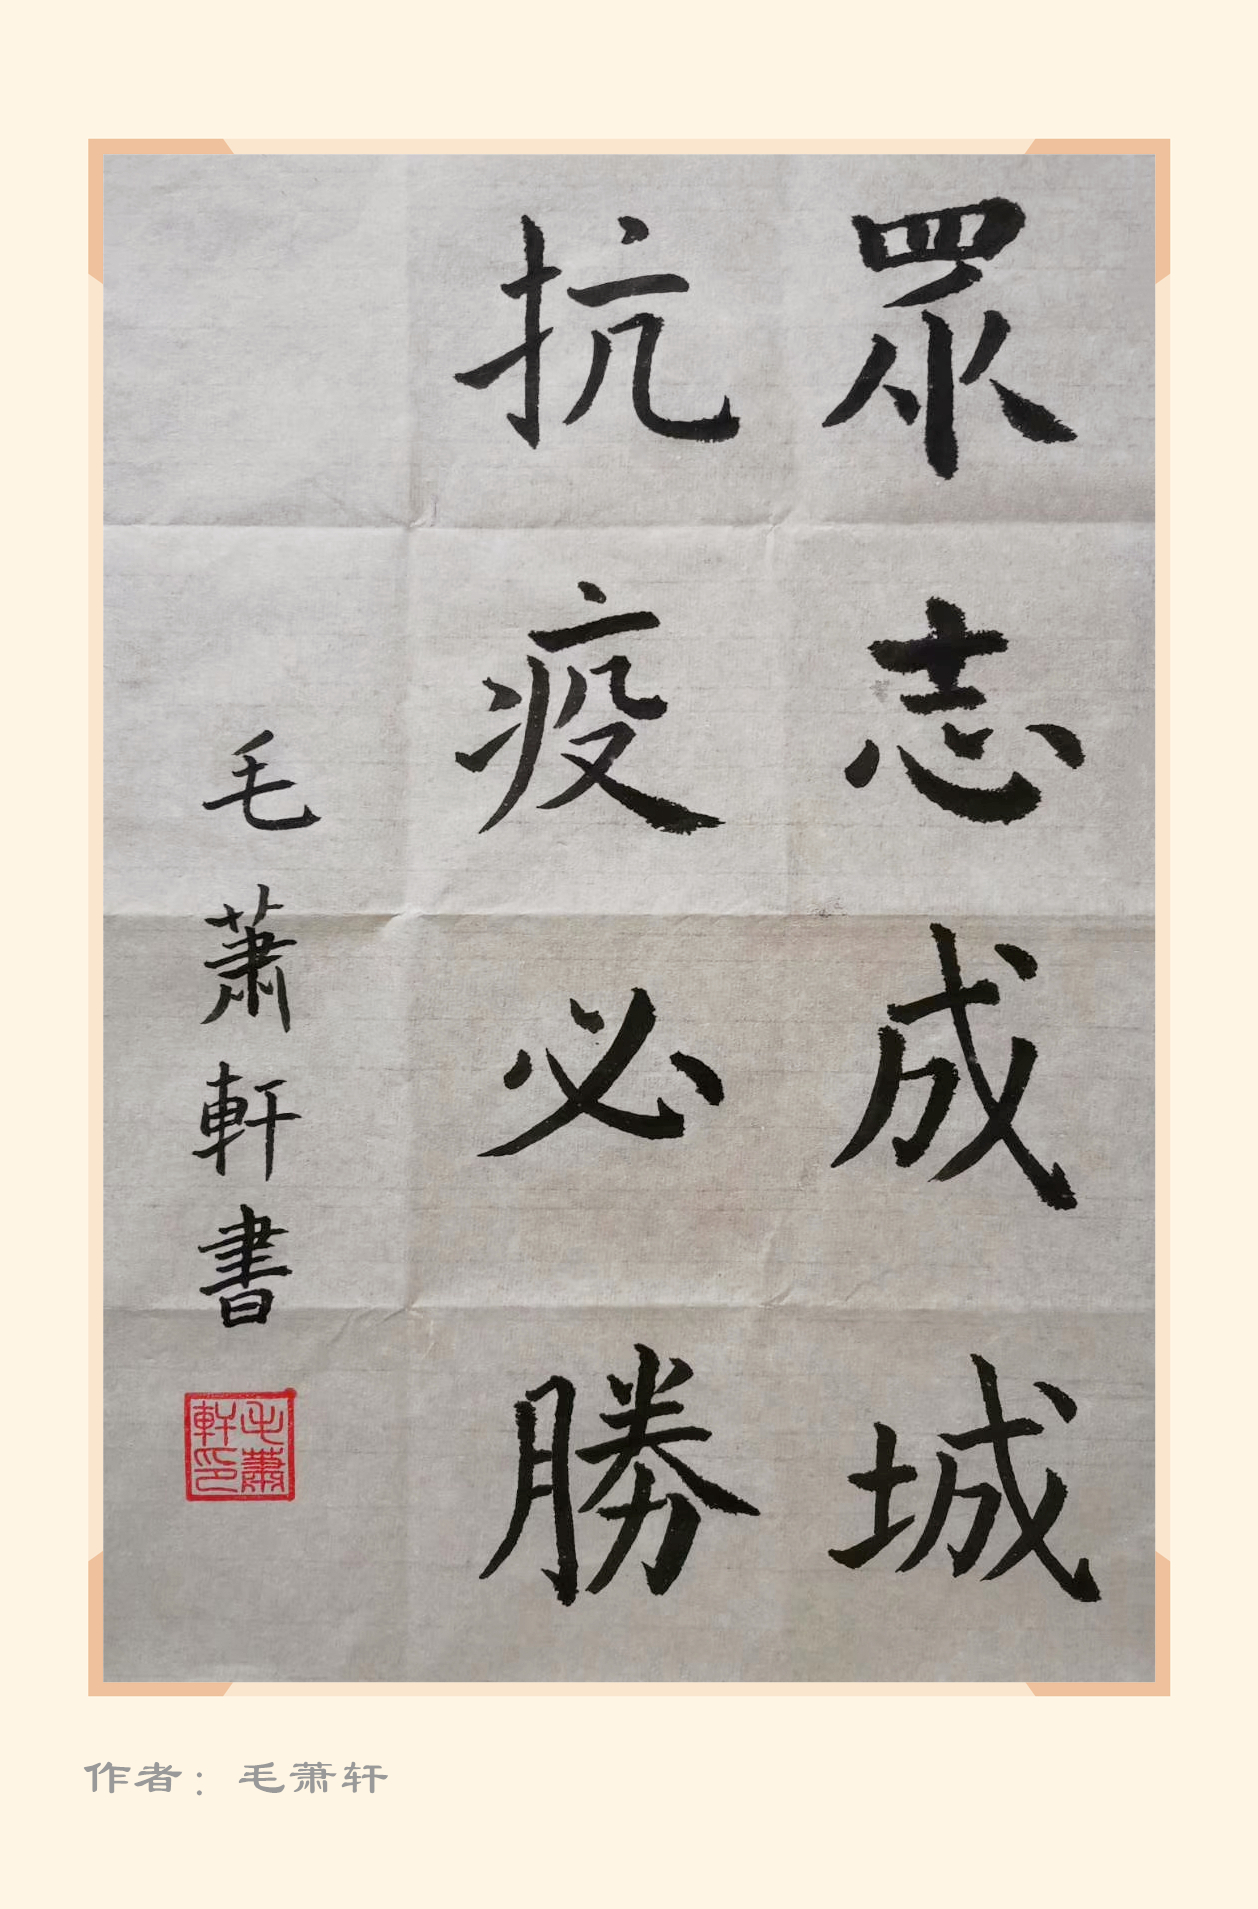 眾志成城
抗疫必勝
毛蕭軒書
毛蕭軒印
作者：毛萧轩